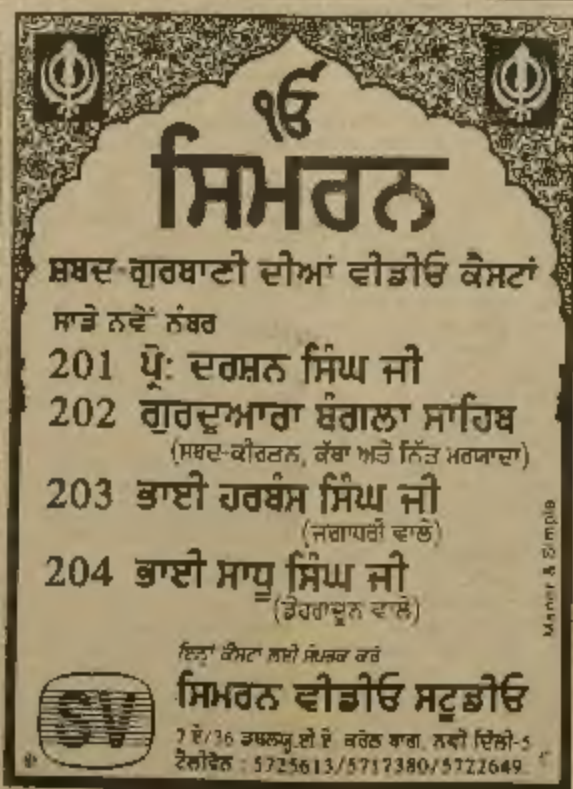 ੴ
ਸਿਮਰਨ
ਸ਼ਬਦ-ਗੁਰਬਾਣੀ ਦੀਆਂ ਵੀਡੀਓ ਕੈਸਟਾਂ
ਸਾਡੇ ਨਵੇਂ ਨੰਬਰ
201 ਪ੍ਰੋ: ਦਰਸ਼ਨ ਸਿੰਘ ਜੀ
202 ਗੁਰਦੁਆਰਾ ਬੰਗਲਾ ਸਾਹਿਬ
(ਸ਼ਬਦ-ਕੀਰਤਨ, ਕੱਥਾ ਅਤੇ ਨਿੱਤ ਮਰਯਾਦਾ)
203 ਭਾਈ ਹਰਬੰਸ ਸਿੰਘ ਜੀ
(ਜਗਾਧਰੀ ਵਾਲੇ)
204 ਭਾਈ ਸਾਧੂ ਸਿੰਘ ਜੀ
(ਡੇਹਰਾਦੂਨ ਵਾਲੇ)
ਇਨ੍ਹਾਂ ਕੈਸਟਾਂ ਲਈ ਸੰਪਰਕ ਕਰੋ
SV
ਸਿਮਰਨ ਵੀਡੀਓ ਸਟੂਡੀਓ
7 ਏ/36 ਡਬਲਯੂ.ਈ ਏ ਕਰੋਲ ਬਾਗ, ਨਵੀਂ ਦਿੱਲੀ-5
ਟੈਲੀਫੋਨ : 5725613/5717380/5722649
& Simple